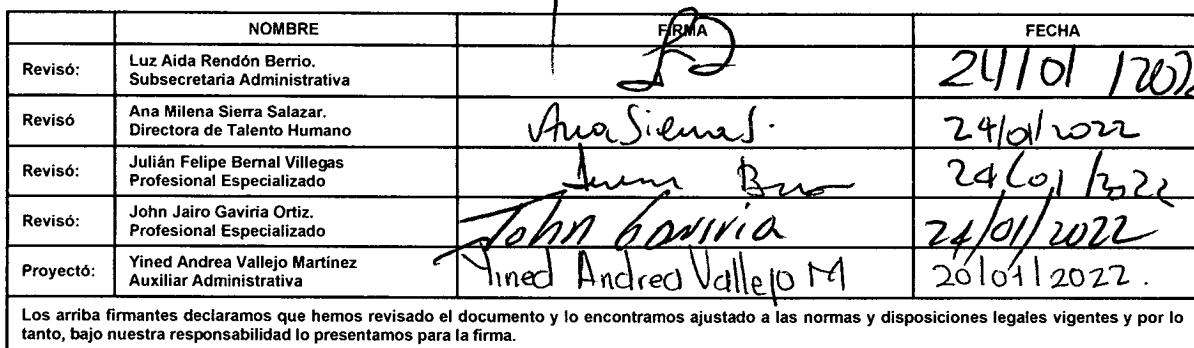 NOMBRE FIRMA FECHA
Revisó: Luz Aida Rendón Berrio.
Subsecretaria Administrativa
24/01/2022
Revisó Ana Milena Sierra Salazar.
Directora de Talento Humano
Ana Sierra S. 24/01/2022
Revisó: Julián Felipe Bernal Villegas
Profesional Especializado
24/01/2022
Revisó: John Jairo Gaviria Ortiz.
Profesional Especializado
John Gaviria 24/01/2022
Proyectó: Yined Andrea Vallejo Martínez
Auxiliar Administrativa
Yined Andrea Vallejo M 20/01/2022.
Los arriba firmantes declaramos que hemos revisado el documento y lo encontramos ajustado a las normas y disposiciones legales vigentes y por lo
tanto, bajo nuestra responsabilidad lo presentamos para la firma.